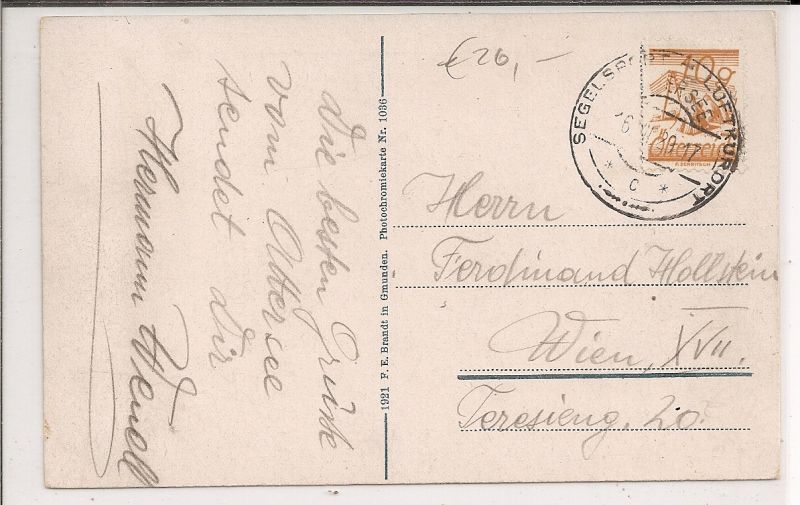 die besten Grüße
vom Attersee
sendet dir
Hermann Wendl
1921 F. E. Brandt in Gmunden. Photochromiekarte Nr. 1036
€ 26,–
10 g
SEGELSPORT + LUFTKURORT
* C *
Herrn
Ferdinand Hollstein
Wien, XVII.
Teresieng. 20